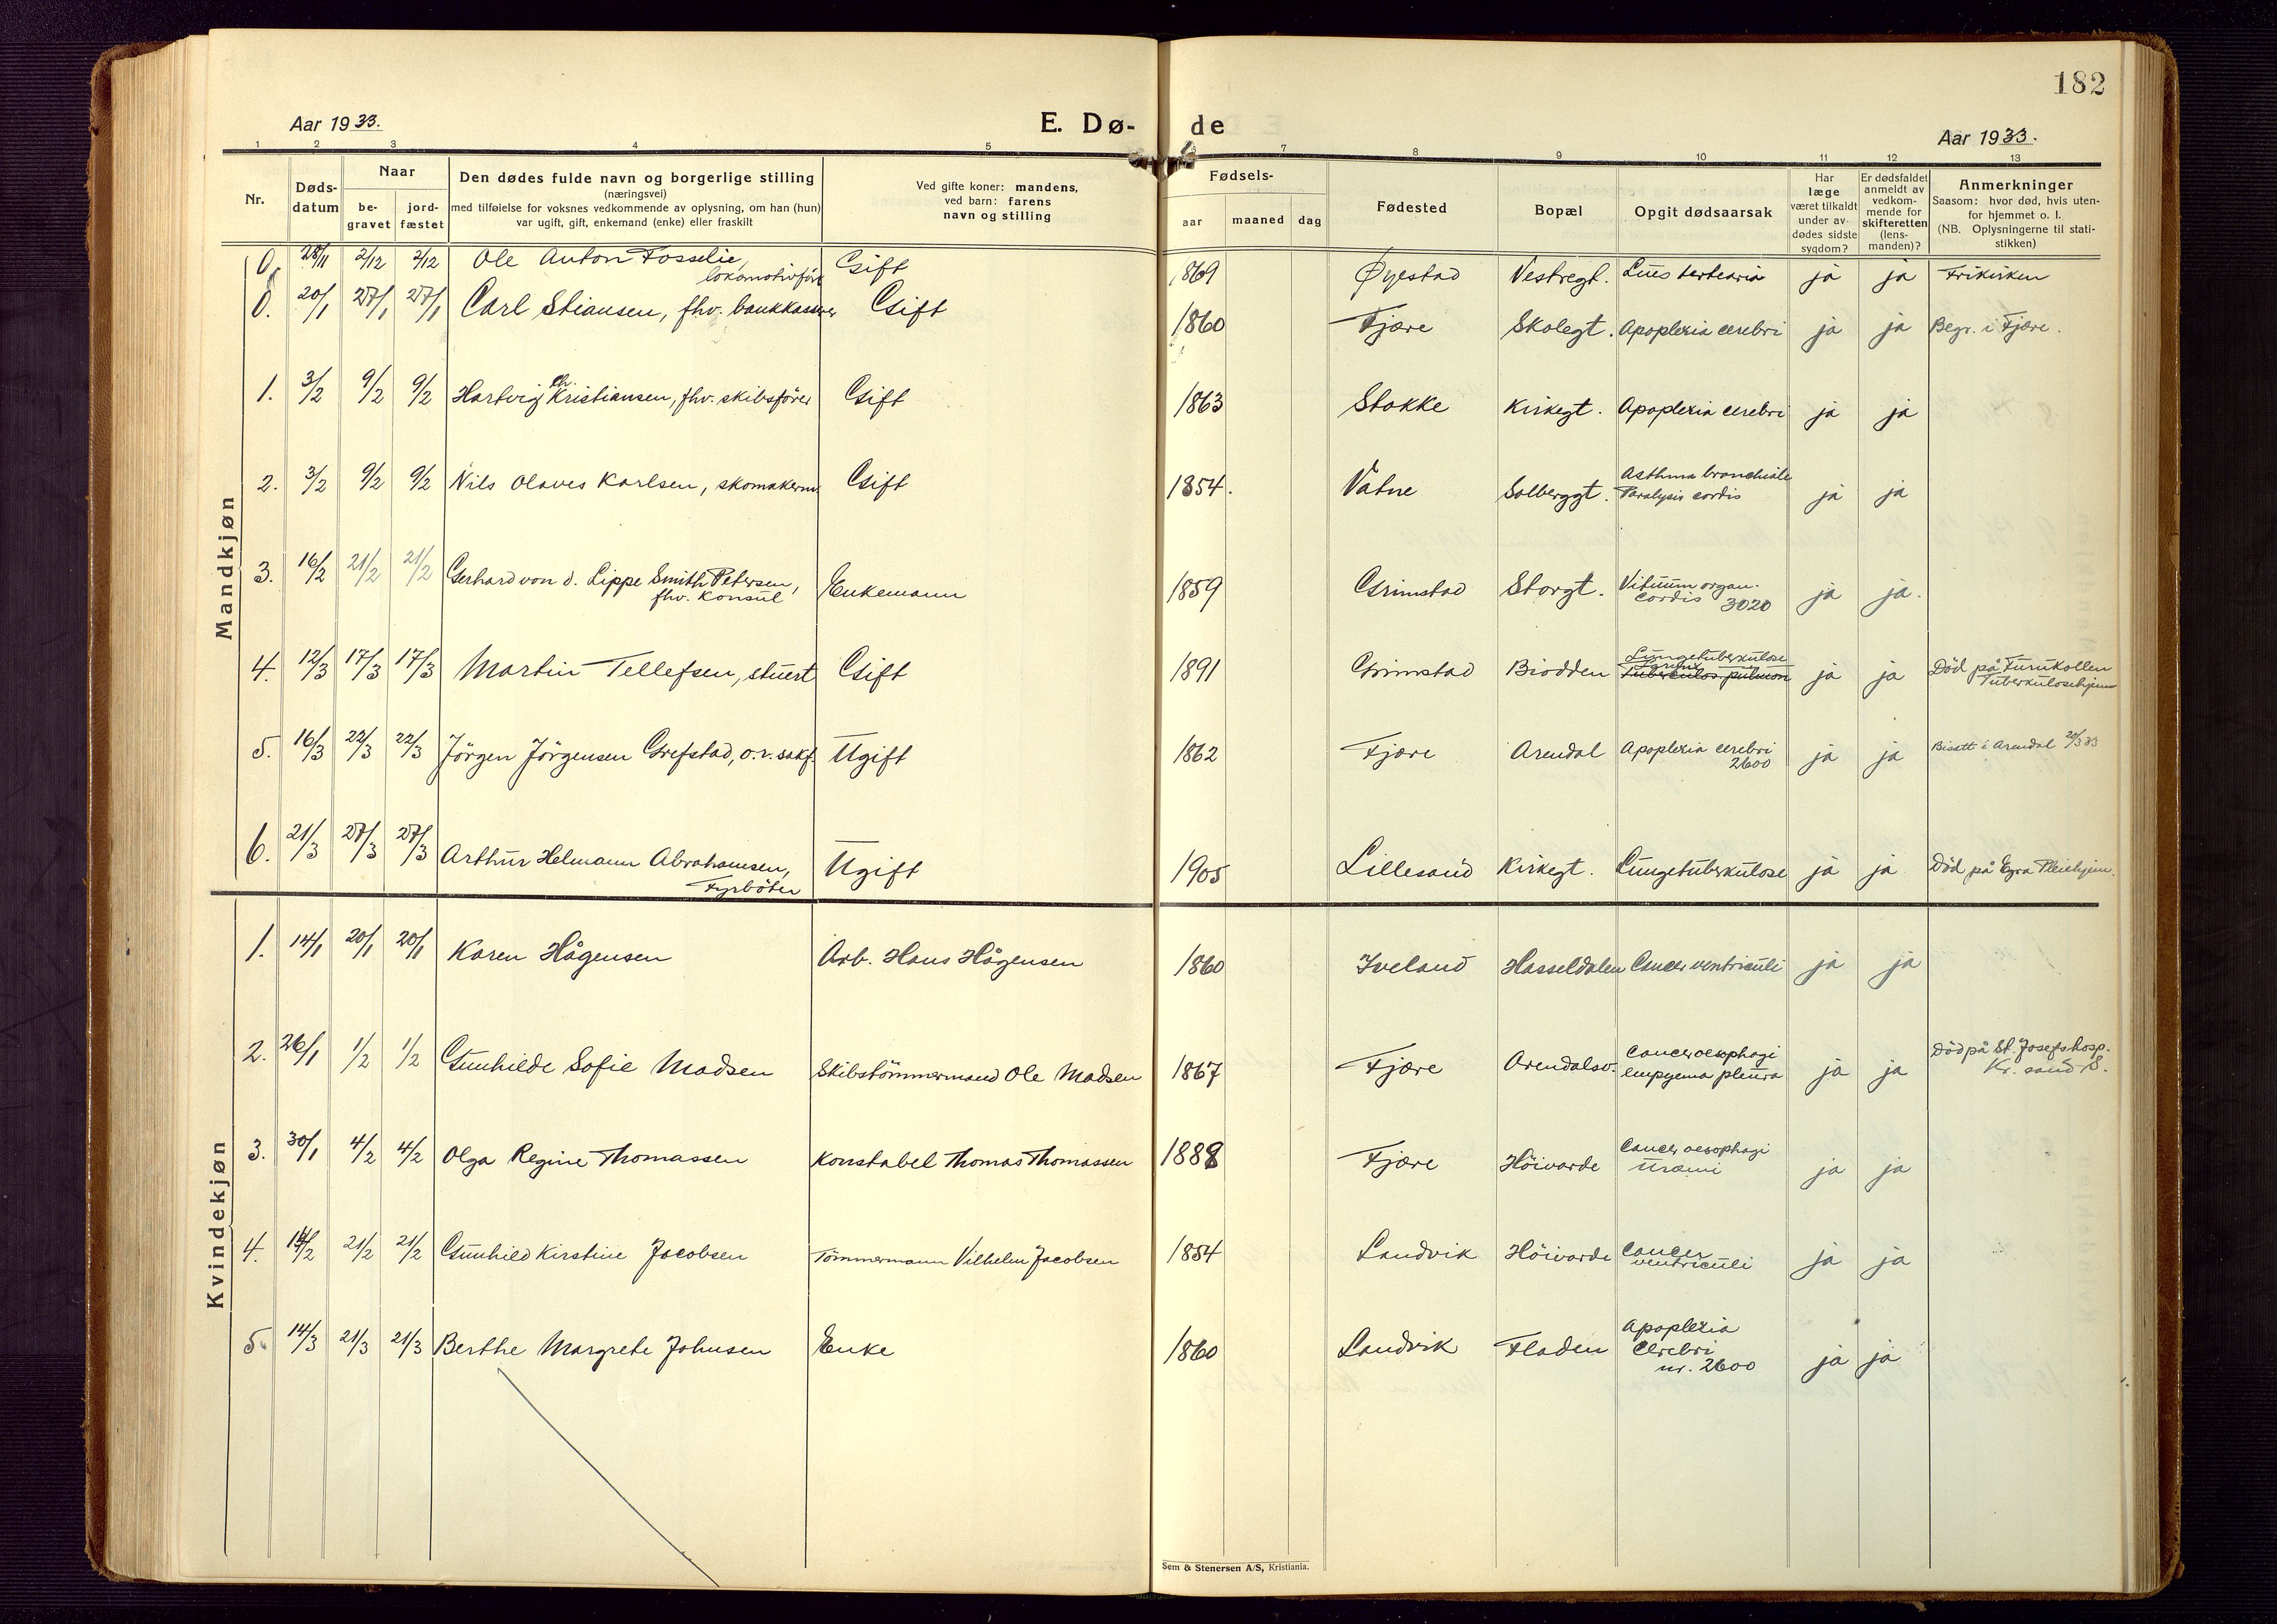 182
Aar 1933.
E. Dø-
de
Aar 1933.
1 2 3 4 5 7 8 9 10 11 12 13
Nr.
Døds-
datum
Naar
be-
gravet
jord-
fæstet
Den dødes fulde navn og borgerlige stilling
(næringsvei)
med tilføielse for voksnes vedkommende av oplysning, om han (hun)
var ugift, gift, enkemand (enke) eller fraskilt
Ved gifte koner: mandens,
ved barn: farens
navn og stilling
Fødsels-
aar maaned dag
Fødested
Bopæl
Opgit dødsaarsak
Har
læge
været tilkaldt
under av-
dødes sidste
sygdom?
Er dødsfaldet
anmeldt av
vedkom-
mende for
skifteretten
(lens-
manden)?
Anmerkninger
Saasom: hvor død, hvis uten-
for hjemmet o. l.
(NB. Oplysningerne til stati-
stikken)
Mandkjøn
0. 28/11 2/12 2/12 Ole Anton Fosselie, Gift 1869 Øyestad Vestregt. Lues tertearia ja ja Frikirken
lokomotivför
0. 20/1 27/1 27/1 Carl Stiansen, fhv. bankkasserer Gift 1860 Fjære Skolegt. Apoplexia cerebri ja ja Begr. i Fjære.
1. 3/2 9/2 9/2 Hartvig Ch. Kristiansen, fhv. skibsfører Gift 1863 Stokke Kirkegt. Apoplexia cerebri ja ja
2. 3/2 9/2 9/2 Nils Olaves Karlsen, skomakerm. Gift 1854. Vatne Solberggt. Asthma bronchiale
Paralysis cordis ja ja
3. 16/2 21/2 21/2 Gerhard von d. Lippe Smith Petersen, Enkemann 1859 Grimstad Storgt. Vitium organ. ja ja.
fhv. konsul cordis 3020
4. 12/3 17/3 17/3 Martin Tellefsen, stuert Gift 1891 Grimstad Biodden Lungetuberkulose
Larinx
Tuberkulos pulmon ja ja Död på Furukollen
Tuberkulosehjem
5. 16/3 22/3 22/3 Jörgen Jörgensen Grefstad, o.r.sakf. Ugift 1862 Fjære Arendal Apoplexia cerebri ja ja Bisatt i Arendal 20/3 33
2600
6. 21/3 27/3 27/3 Arthur Helmann Abrahamsen, Ugift 1905 Lillesand Kirkegt. Lungetuberkulose ja ja Död på Egra Pleiehjem.
Fyrböter
Kvindekjøn
1. 14/1 20/1 20/1 Karen Hågensen Arb. Hans Hågensen 1860 Iveland Hasseldalen Cancer ventriculi ja ja
2. 26/1 1/2 1/2 Gunhilde Sofie Madsen Skibstömmermand Ole Madsen 1867 Fjære Arendalsv. Cancer oesophagi
empyema pleura ja ja Död på St. Josefs hosp.
Kr. sand S.
3. 30/1 4/2 4/2 Olga Regine Thomassen Konstabel Thomas Thomassen 1888 Fjære Höivarde Cancer oesophagi
Uræmi ja ja
4. 21/2 21/2 Gunhild Kirstine Jacobsen Tömmermann Vilhelm Jacobsen 1854 Landvik Höivarde Cancer
ventriculi ja ja
5. 14/3 21/3 21/3 Berthe Margrete Johnsen Enke 1860 Landvik Fladen Apoplexia
Cerebri
nr. 2600 ja ja
Sem & Stenersen A/S, Kristiania.